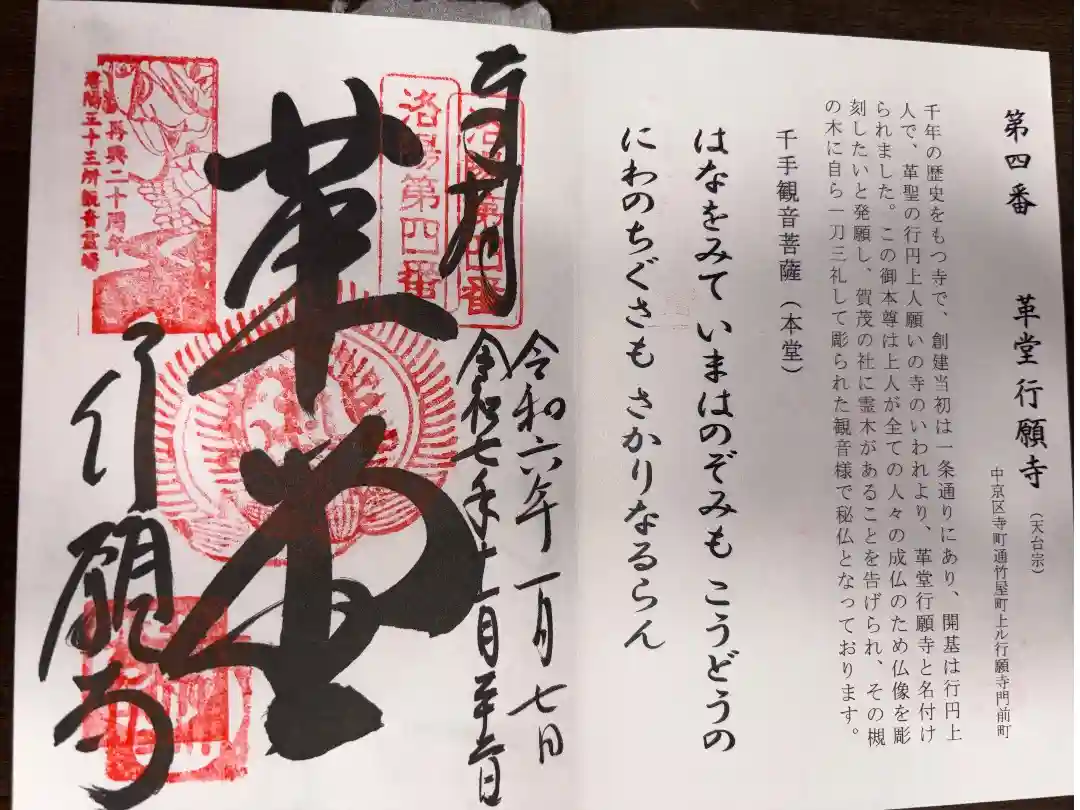 第四番 革堂行願寺（天台宗）
中京区寺町通竹屋町上ル行願寺門前町
千年の歴史をもつ寺で、創建当初は一条通りにあり、開基は行円上
人で、革聖の行円上人願いの寺のいわれより、革堂行願寺と名付け
られました。この御本尊は上人が全ての人々の成仏のため仏像を彫
刻したいと発願し、賀茂の社に霊木があることを告げられ、その槻
の木に自ら一刀三礼して彫られた観音様で秘仏となっております。
千手観音菩薩（本堂）
はなをみて いまはのぞみも こうどうの
にわのちぐさも さかりなるらん
洛陽第四番
令和六年一月七日
洛陽第四番
革堂
再興二十周年
洛陽三十三所観音霊場
行願寺